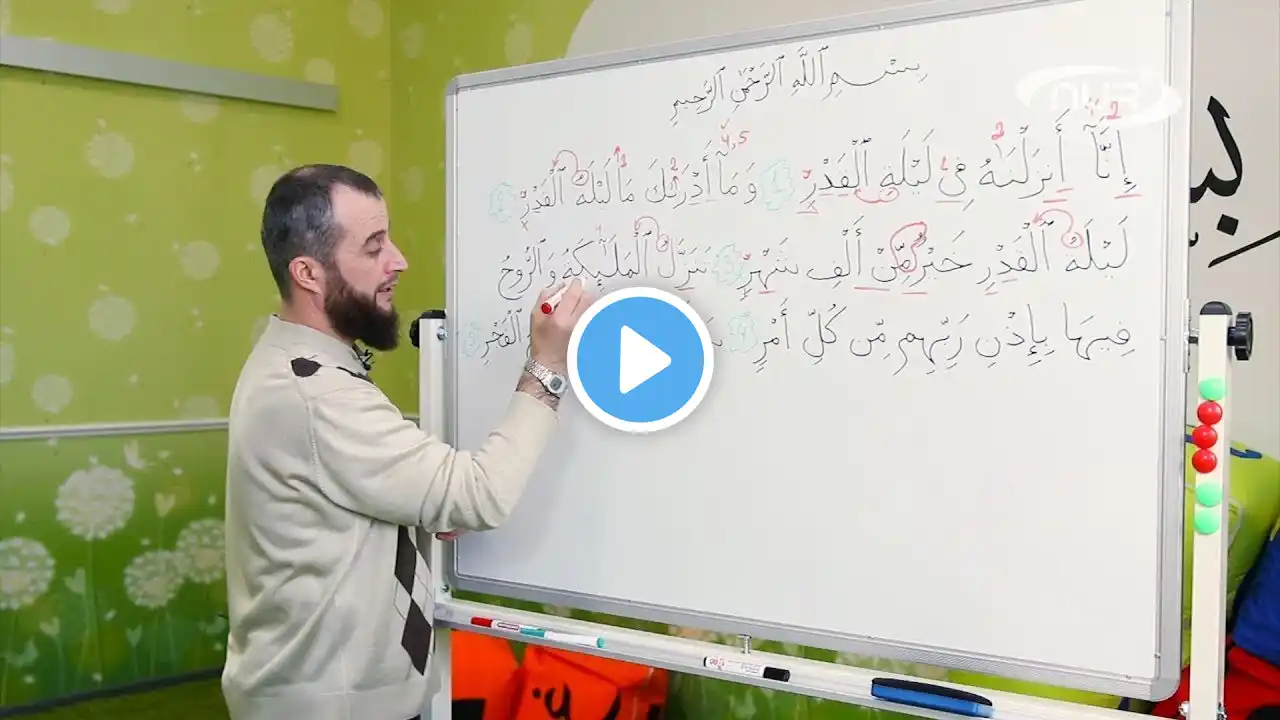 بِسْمِ ٱللَّهِ ٱلرَّحْمَٰنِ ٱلرَّحِيمِ
إِنَّآ أَنزَلْنَـٰهُ فِي لَيْلَةِ ٱلْقَدْرِ ١ وَمَآ أَدْرَىٰكَ مَا لَيْلَةُ ٱلْقَدْرِ ٢
لَيْلَةُ ٱلْقَدْرِ خَيْرٌ مِّنْ أَلْفِ شَهْرٍ ٣ تَنَزَّلُ ٱلْمَلَـٰٓئِكَةُ وَٱلرُّوحُ
فِيهَا بِإِذْنِ رَبِّهِم مِّن كُلِّ أَمْرٍ ٤ ٱلْفَجْرِ ٥
2
4,5
2
2
2
NUR